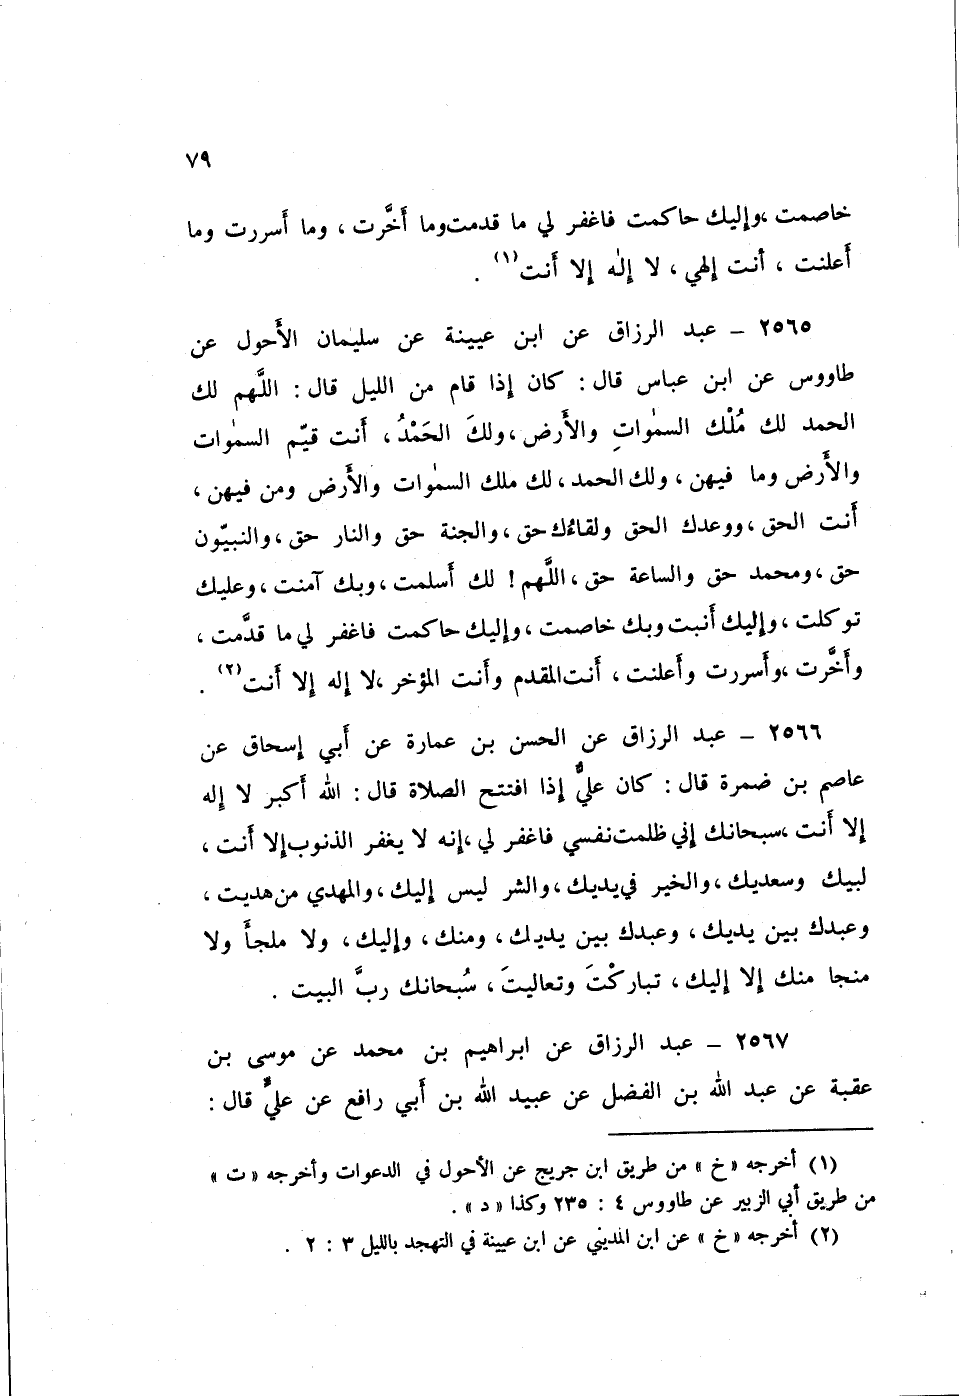 ٧٩
خاصمت ،وإليك حاكمت فاغفر لي ما قدمت وما أخَّرت ، وما أسررت وما
أعلنت ، أنت إلهي ، لا إلٰه إلا أنت(١) .
٢٥٦٥ – عبد الرزاق عن ابن عيينة عن سليمان الأحول عن
طاووس عن ابن عباس قال : كان إذا قام من الليل قال : اللّهم لك
الحمد لك مُلْك السمٰواتِ والأرض ،ولكَ الحَمْدُ ، أنت قيّم السمٰوات
والأرض وما فيهن ، ولك الحمد ، لك ملك السمٰوات والأرض ومن فيهن ،
أنت الحق ،ووعدك الحق ولقاءك حق ،والجنة حق والنار حق ،والنبيّون
حق ،ومحمد حق والساعة حق ،اللّهم ! لك أسلمت ،وبك آمنت ،وعليك
توكلت ،وإليك أنبت وبك خاصمت ،وإليك حاكمت فاغفر لي ما قدَّمت ،
وأخَّرت ،وأسررت وأعلنت ، أنت المقدم وأنت المؤخر ،لا إله إلا أنت(٢) .
٢٥٦٦ – عبد الرزاق عن الحسن بن عمارة عن أبي إسحاق عن
عاصم بن ضمرة قال : كان عليٌّ إذا افتتح الصلاة قال : الله أكبر لا إله
إلا أنت ،سبحانك إني ظلمت نفسي فاغفر لي ،إنه لا يغفر الذنوب إلا أنت ،
لبيك وسعديك ،والخير في يديك ،والشر ليس إليك ،والمهدي من هديت ،
وعبدك بين يديك ، وعبدك بين يديك ، ومنك ، وإليك ، ولا ملجأ ولا
منجا منك إلا إليك ، تباركْتَ وتعاليتَ ، سُبحانك ربَّ البيت .
٢٥٦٧ – عبد الرزاق عن ابراهيم بن محمد عن موسى بن
عقبة عن عبد الله بن الفضل عن عبيد الله بن أبي رافع عن عليٍّ قال :
(١) أخرجه «خ» من طريق ابن جريج عن الأحول في الدعوات وأخرجه «ت»
من طريق أبي الزبير عن طاووس ٤ : ٢٣٥ وكذا «د» .
(٢) أخرجه «خ» عن ابن المديني عن ابن عيينة في التهجد بالليل ٣ : ٢ .